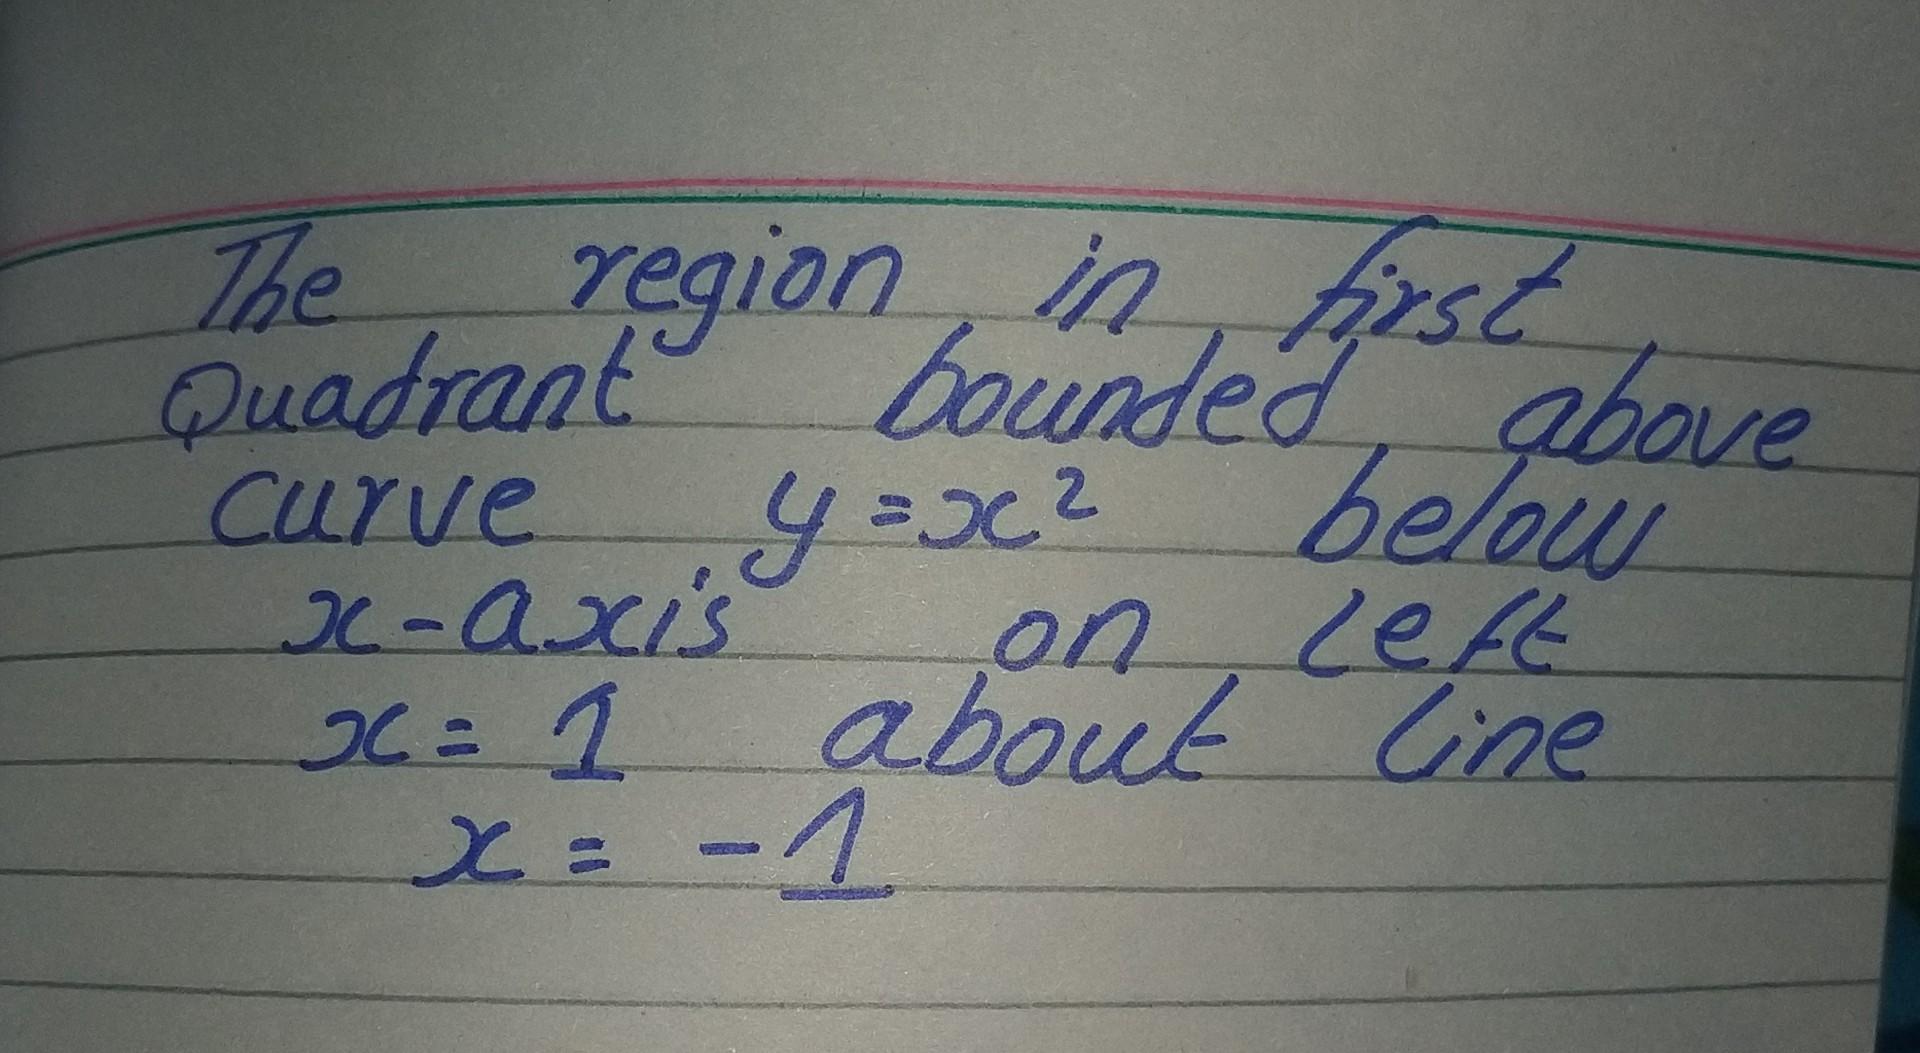 The region in first
Quadrant bounded above
curve y = x² below
x-axis on left
x = 1 about line
x = -1